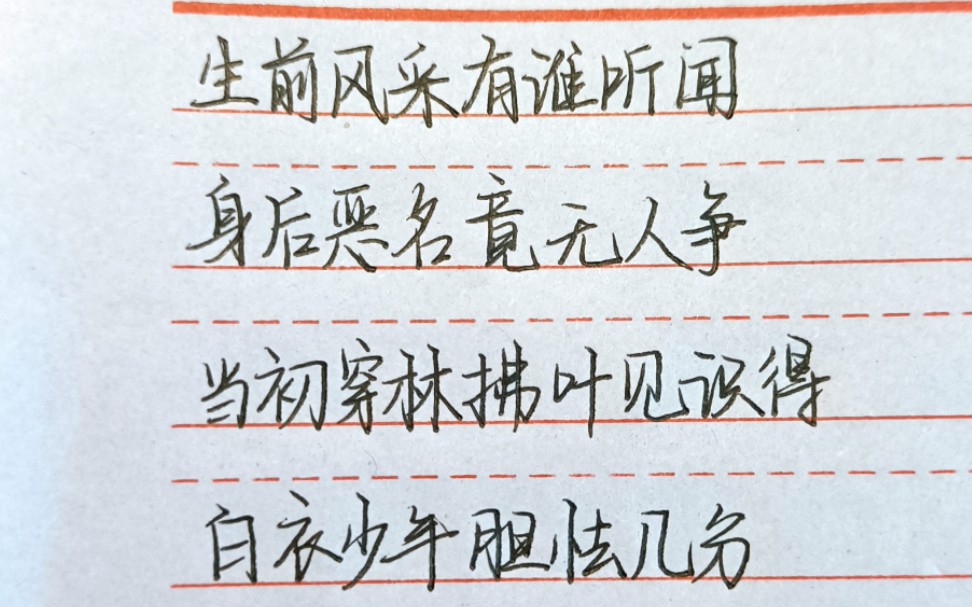 生前风采有谁听闻
身后恶名竟无人争
当初穿林拂叶见识得
白衣少年胆怯几分